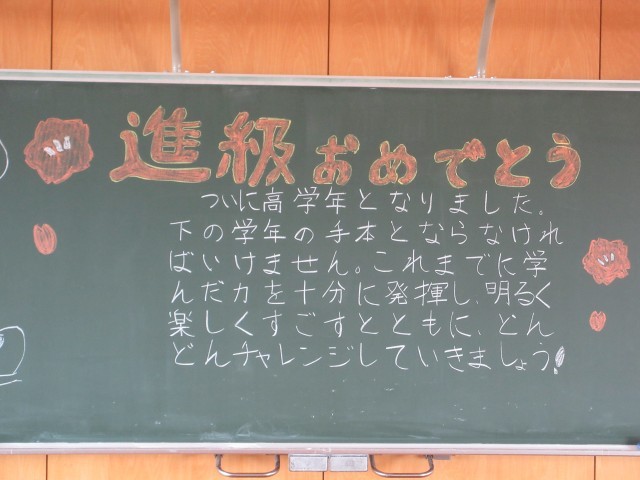 進級おめでとう
ついに高学年となりました。
下の学年の手本とならなけれ
ばいけません。これまでに学
んだ力を十分に発揮し、明るく
楽しくすごすとともに、どん
どんチャレンジしていきましょう!